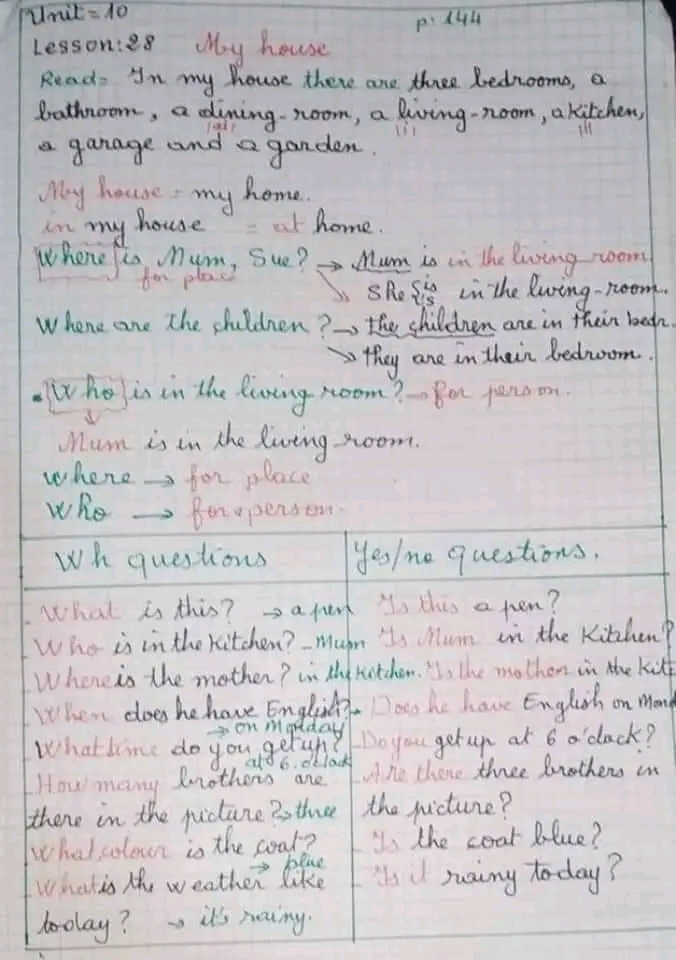 Unit = 10
p: 144
Lesson: 28 My house
Read = In my house there are three bedrooms, a
bathroom, a dining-room, a living-room, a kitchen,
a garage and a garden.
My house = my home.
in my house = at home.
Where is Mum, Sue? → Mum is in the living room.
for place
She is 's in the living-room.
Where are the children? → the children are in their bedr.
→ they are in their bedroom.
Who is in the living room? → for person.
Mum is in the living-room.
where → for place
Who → for person
Wh questions Yes/no questions.
What is this? → a pen Is this a pen?
Who is in the Kitchen? - Mum Is Mum in the Kitchen?
Where is the mother? in the kitchen. Is the mother in the Kit
When does he have English? Does he have English on Mond
→ on Monday
What time do you get up? Do you get up at 6 o'clock?
at 6. o'clock
How many brothers are Are there three brothers in
there in the picture? → three the picture?
What colour is the coat? Is the coat blue?
→ blue
What is the weather like Is it rainy today?
today? → it's rainy.